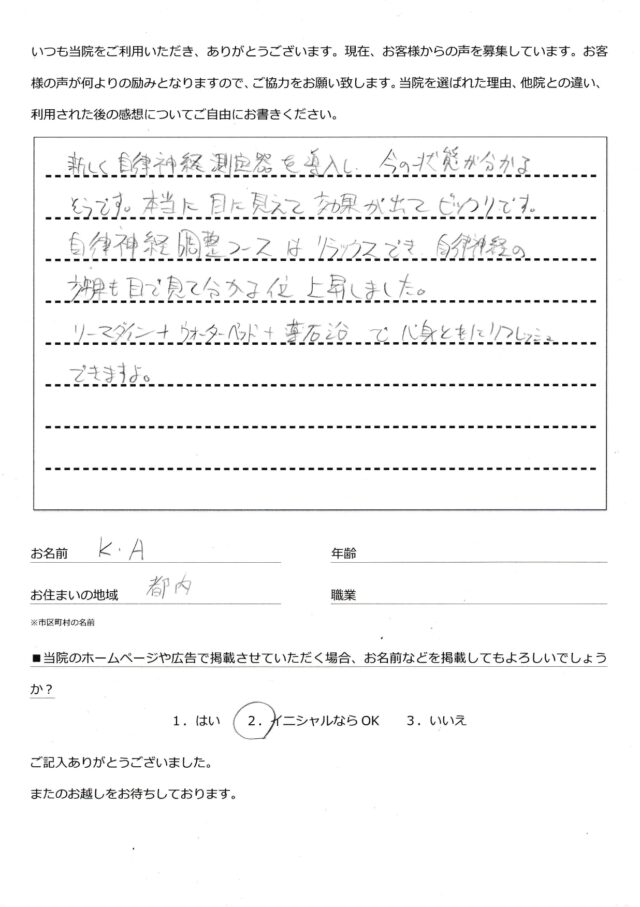 いつも当院をご利用いただき、ありがとうございます。現在、お客様からの声を募集しています。お客
様の声が何よりの励みとなりますので、ご協力をお願い致します。当院を選ばれた理由、他院との違い、
利用された後の感想についてご自由にお書きください。
新しく自律神経測定器を導入し、今の状態が分かる
そうです。本当に目に見えて効果が出てビックリです。
自律神経調整コースはリラックスでき自律神経の
効果も目で見て分かる位上昇しました。
リーマダイン+ウォーターベッド+薬石浴で心身ともにリフレッシュ
できますよ。
お名前 K.A 年齢
お住まいの地域 都内 職業
※市区町村の名前
■当院のホームページや広告で掲載させていただく場合、お名前などを掲載してもよろしいでしょう
か?
1.はい 2.イニシャルならOK 3.いいえ
ご記入ありがとうございました。
またのお越しをお待ちしております。